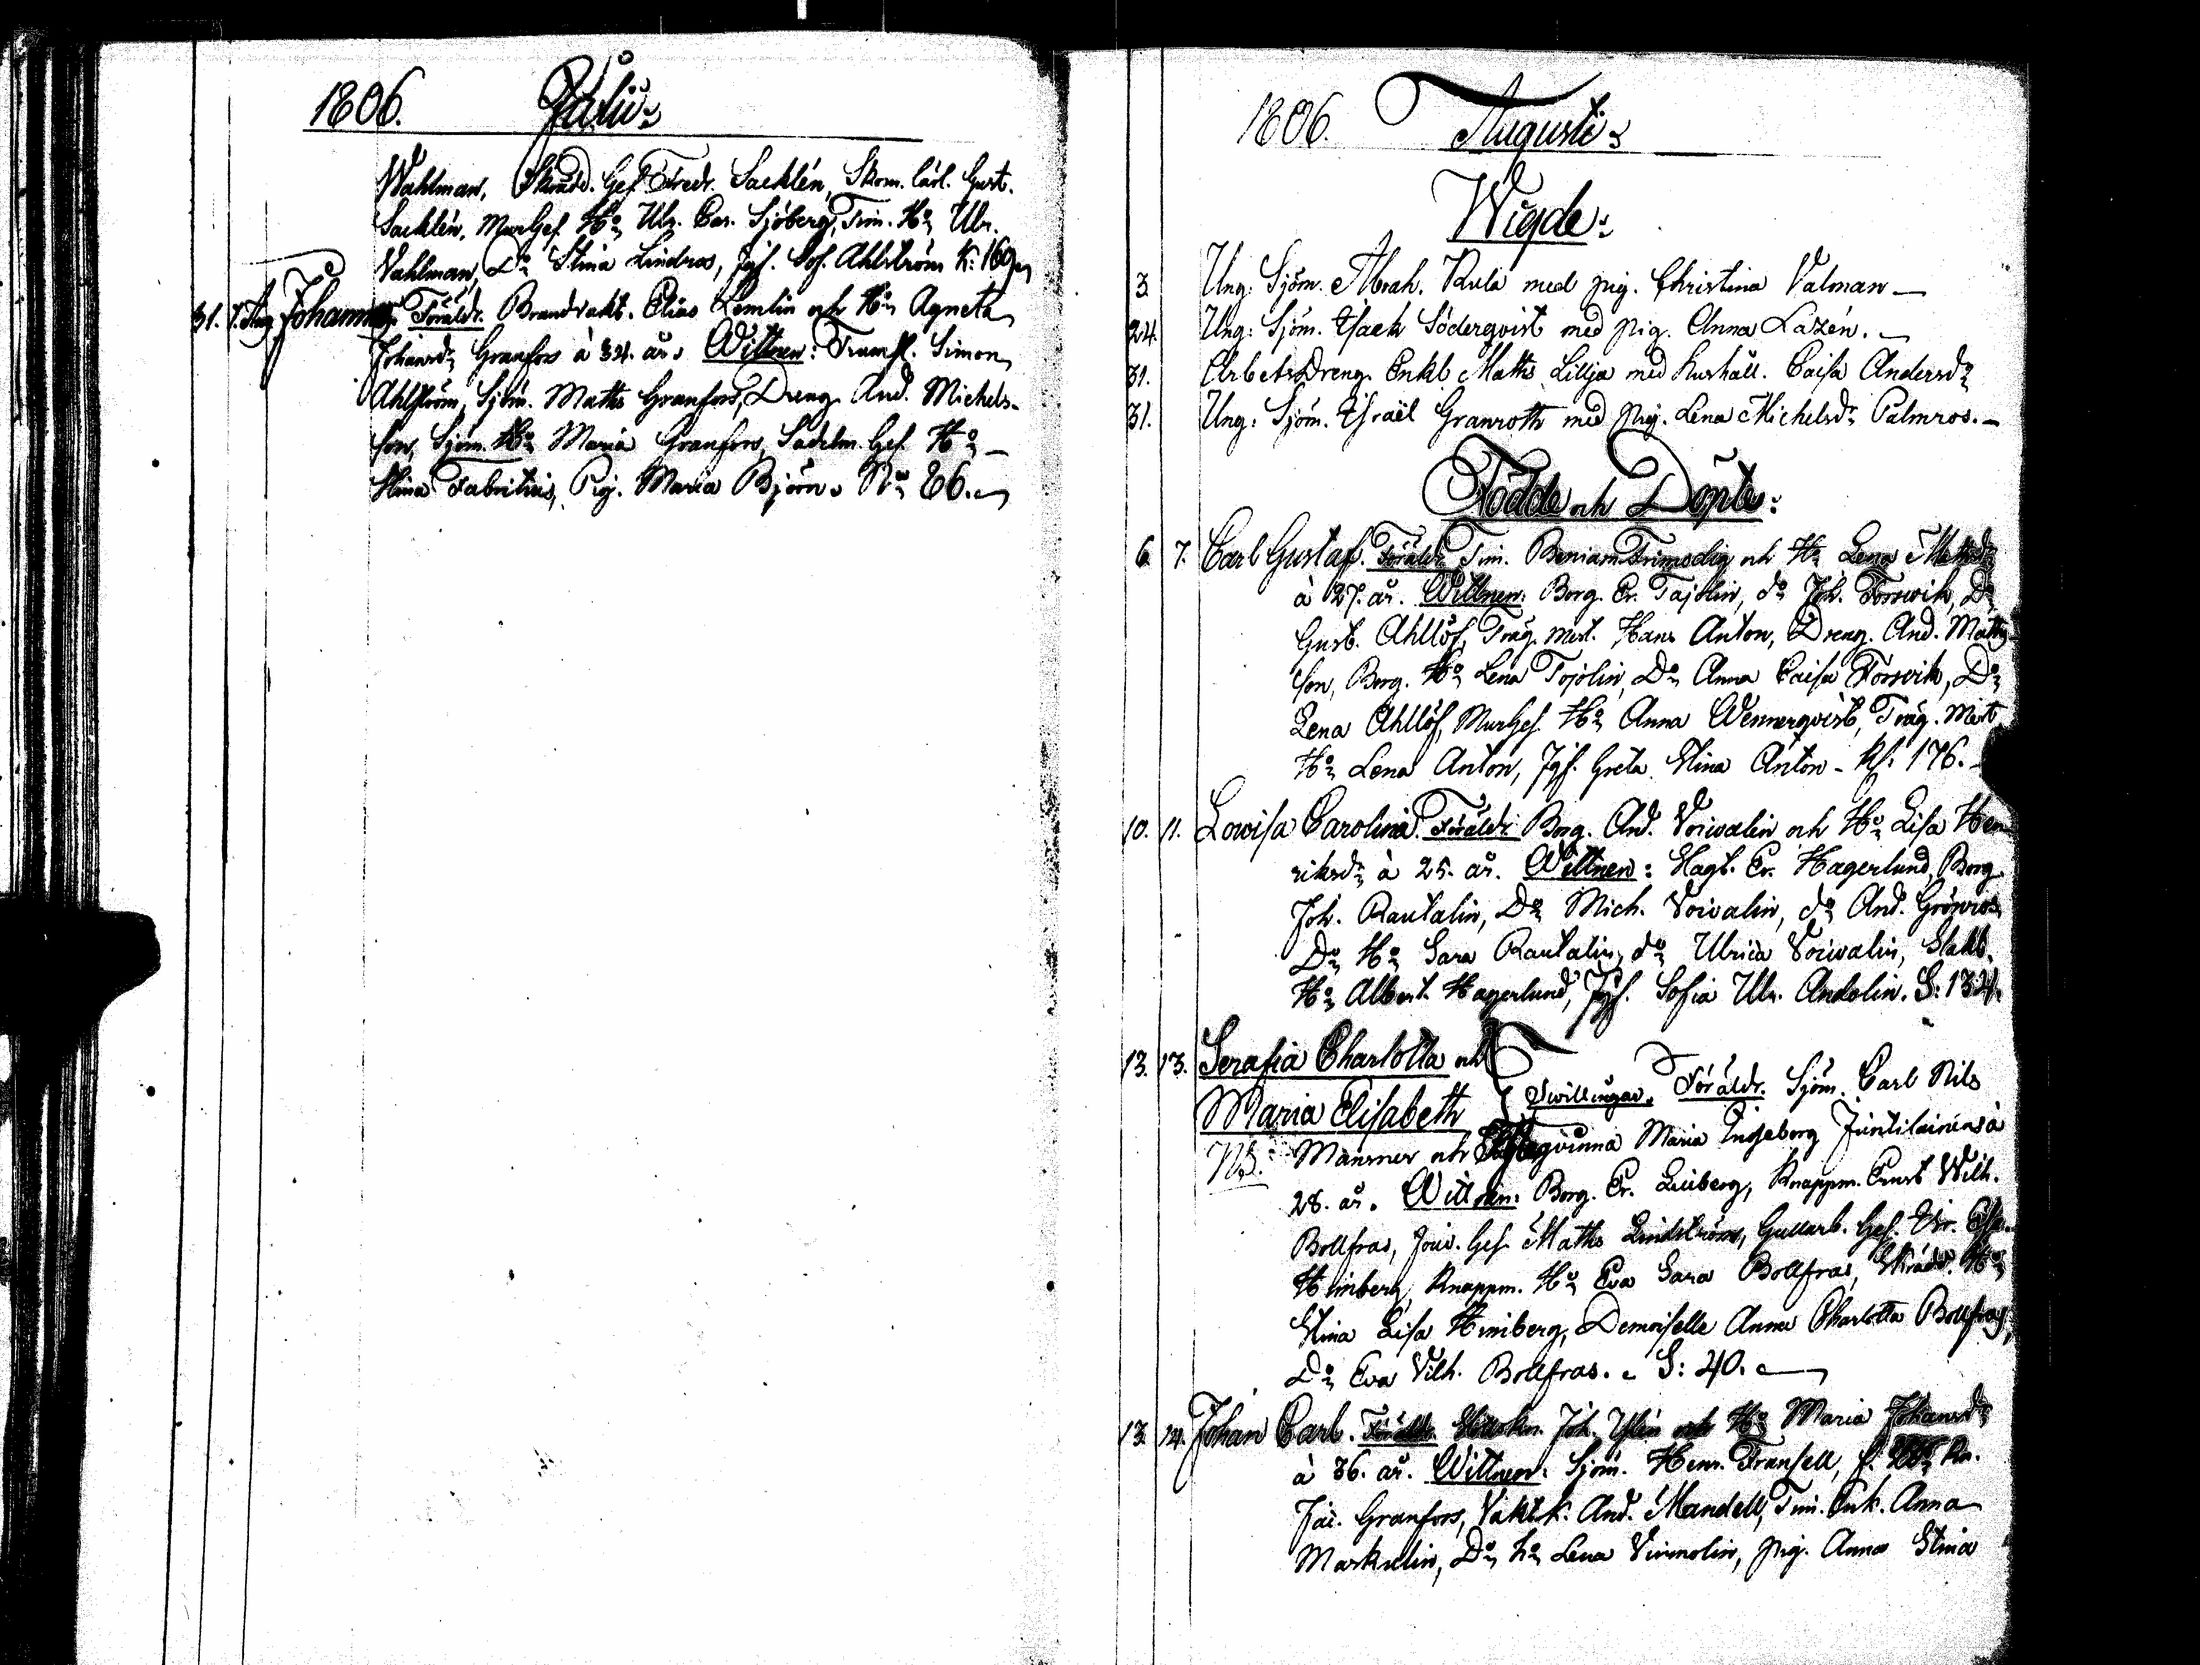 1806. Julii
Wahlman, Skrädd. Ges. Fredr. Sacklén, Skom. Carl. Gust.
Sacklén, MurGes. Ho Ulr. Cas. Sjöberg, Tim. Ho Ulr.
Vahlman, Do Stina Lindros, Jgf. Sof. Ahlström K: 169.
31. 1. Aug. Johanna. Föräldr. Brandvakt. Elias Lemlin och Ho Agneta
Johansdr Granfors à 34. år. Wittnen: Trumsl. Simon
Ahlström, Sjöm. Matts Granfors, Dreng And. Michels-
son, Sjöm. Ho Maria Granfors, Sadelm. Ges. Ho
Stina Fabritius, Pig. Maria Björn. No 86.
1806. Augusti
Wigde:
3. Ung. Sjöm. Abrah. Kula med pig. Christina Valman —
24. Ung: Sjöm. Isack Söderqvist med pig. Anna Lazén. —
31. ArbetsDreng. Enkl Matts Lillja med hushåll. Caisa Andersdr
31. Ung: Sjöm. Israël Granroth med pig. Lena Michelsdr Palmros. —
Födde och Döpte:
6. 7. Carl Gustaf. Föräldr. Tim. Beniam Frimodig och Ho Lena
à 27. år. Wittnen: Borg. Er. Tajolin, do Joh. Forsvik, Do
Gust. Ahllöf, Träg. mest. Hans Anton, Dreng. And. Matts
son, Borg. Ho Lena Tojolin, Do Anna Caisa Forsvik, Do
Lena Ahllöf, MurGes. Ho Anna Wennerqvist, Träg. Mest
Ho Lena Anton, Jgf. Greta Stina Anton - Kl. 176. -
10. 11. Lovisa Carolina. Föräldr. Borg. And. Voivalin och Ho Lisa Hen
riksdr à 25. år. Wittnen: Slagt. Er. Hagerlund, Borg
Joh. Rautalin, Do Mich. Voivalin, do And. Grönros
Do Ho Sara Rautalin, do Ulrica Voivalin, Slakt.
Ho Albert. Hagerlund, Jgf. Sofia Ulr. Andolin. S: 134.
13. 13. Serafia Charlotta och
Maria Elisabeth } Twillingar. Föräldr. Sjöm. Carl Nils
NB. Mansner och Maria Ingeborg Juntilainen à
28. år. Wittnen: Borg. Er. Luiberg, Knappm. Ernst Wilh.
Bollfras, Jouv. Ges. Matts Lindström, Gullarb. Ges.
Himberg, Knappm. Ho Eva Sara Bollfras, Skrädd. Ho
Stina Lisa Himberg, Demoiselle Anna Charlotta Bollfras,
Do Eva Vilh. Bollfras. S: 40.
13. 14. Johan Carl. Föräldr. Joh. och Ho Maria Johansdr
à 36. år. Wittnen: Sjöm. Henr. Fransell,
Jac. Granfors, Vakt.k. And. Mandell, Tim. Enk. Anna
Markulin, Do ho Lena Virmolin, pig. Anna Stina